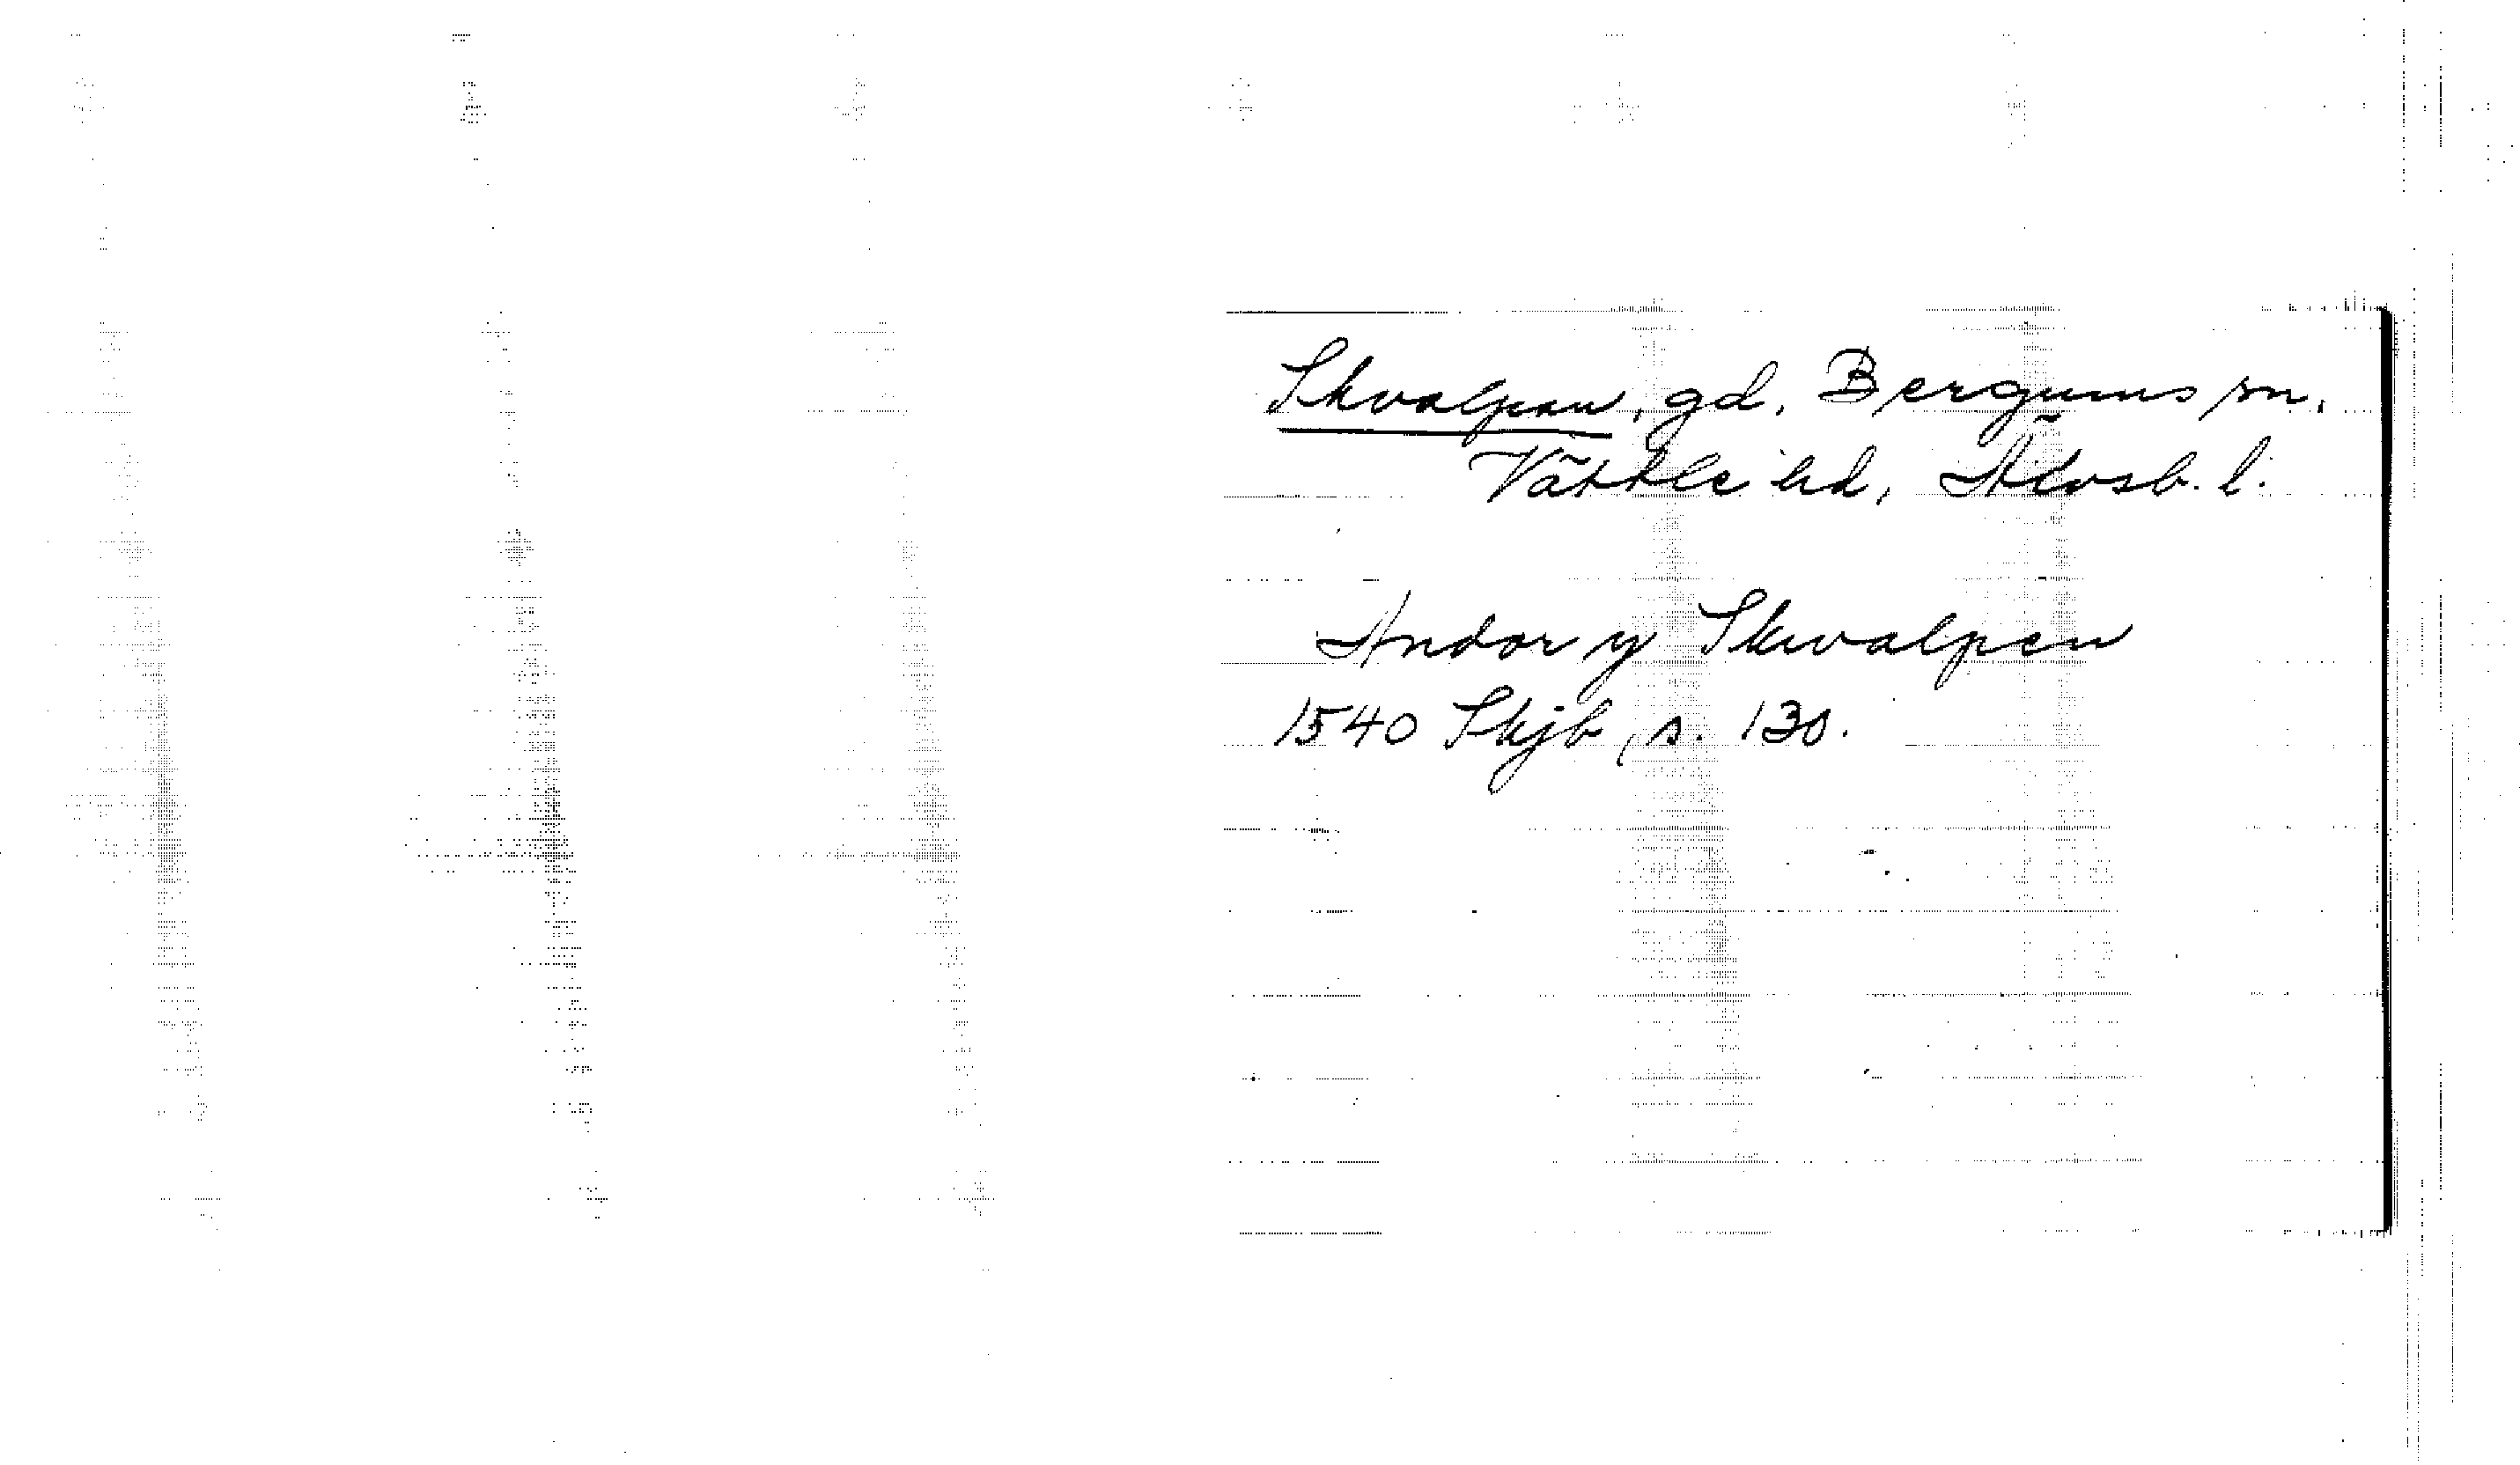 Skvalpan, gd, Bergums sn.
Vättle hd, Älvsb. l.
Andor y Skvalpen
1540 Skjb, s. 130.